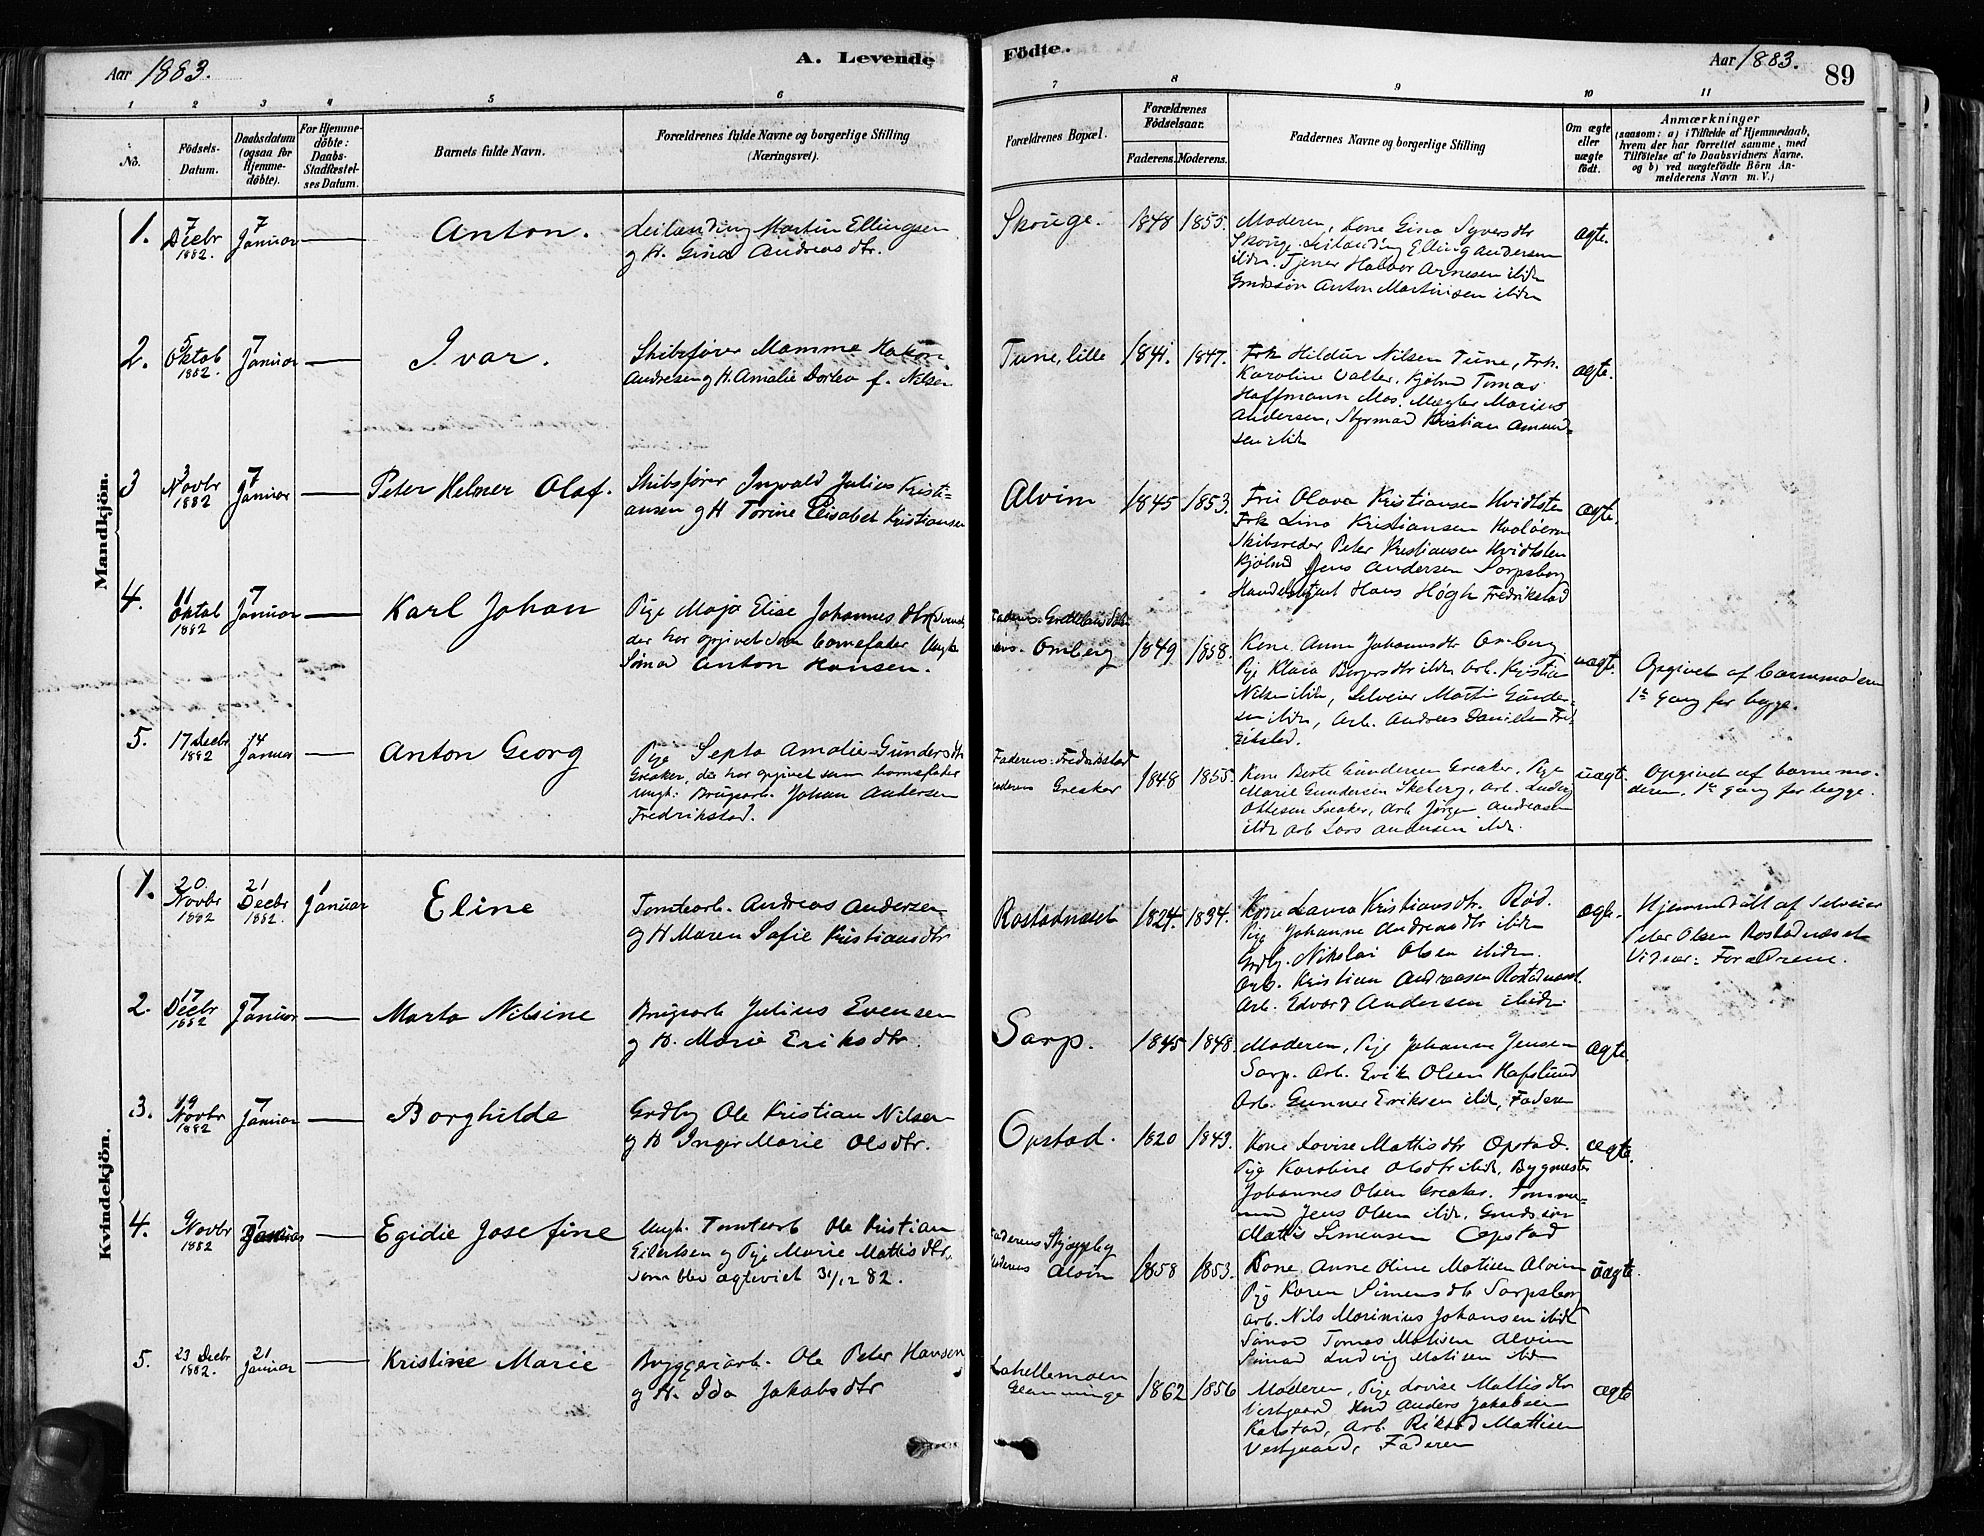 Aar 1883.
A. Levende Födte.
Aar 1883.
89
1 2 3 4 5 6 7 8 9 10 11
No.
Födsels-
Datum.
Daabsdatum
(ogsaa for
Hjemme-
döbte).
For Hjemme-
döbte:
Daabs-
Stadfæstel-
ses Datum.
Barnets fulde Navn.
Forældrenes fulde Navne og borgerlige Stilling
(Næringsvei).
Forældrenes Bopæl.
Forældrenes
Födselsaar.
Faderens. Moderens.
Faddernes Navne og borgerlige Stilling
Om ægte
eller
uægte
födt.
Anmærkninger
(saasom: a) i Tilfælde af Hjemmedaab,
hvem der har forrettet samme, med
Tilföielse af to Daabsvidners Navne.
og b) ved uægtefödte Börn An-
melderens Navn m. V.)
Mandkjön.
1.
7
Decbr
1882.
7
Januar
Anton.
Leilænding Martin Ellingsen
og H. Gina Andreasdtr.
Skouge.
1848 1855.
Moderen, Kone Gina Syversdtr
Skouge. Leilænding Elling Andersen
ibdn. Tjener Halvor Arnesen ibdn
Grndssøn Anton Martinsen ibdn
ægte.
2.
5
Oktob
1882.
7
Januar
Ivar.
Skibsfører Mamme Hakon
Andresen og H. Amalie Dortea f. Nilsen
Tune, lille
1841. 1847.
Frk Hildur Nilsen Tune, Frk.
Karoline Valter, Kjøbmd Tomas
Hoffmann Mos. Mægler Marius
Andersen, Styrmad Kristian Amund-
sen ibdn
ægte.
3
3
Novbr
1882
7
Januar
Peter Helmer Olaf.
Skibsfører Ingvald Julius Kristi-
ansen og H Torine Elisabet Kristiansen
Alvim
1845 1853.
Fru Olava Kristiansen Hvidtsten
Frk Lina Kristiansen Hvaløerne
Skibsreder Peter Kristiansen Hvidtsten
Kjøbmd Jens Andersen Sarpsborg
Handelsbetjent Hans Høgh Fredrikstad
ægte.
4.
11
Oktob
1882
7
Januar
Karl Johan
Pige Maja Elise Johannesdtr
der har opgivet som barnefader Ungk.
Sømd Anton Hansen.
Omberg
1849 1858.
Kone Anne Johannsdtr Omberg
Pige Klara Borgersdtr ibdn Arb. Kristian
Nilsen ibdn, Selveier Martin Gunder-
sen ibdn, Arb. Andreas Danielsen Fred-
rikstad.
uægte.
Opgivet af barnemoderen
1ste gang for begge.
5.
17 Decbr
1882
14
Januar
Anton Georg
Pige Septa Amalie Gundersdtr
Greaker, der har opgivet som barnefader
Ungk: Brugsarb. Johan Andersen
Fredrikstad.
Faderens: Fredrikstad
Moderens Greaker
1848 1855
Kone Berte Gundersen Greaker, Pige
Marie Gundersen Skeberg, Arb. Ludvig
Ottesen Greaker, Arb Jørgen Andreasen
ibdn Arb Lars Andersen ibdn.
uægt.
Opgivet af barnemo-
deren, 1ste gang for begge.
Kvindekjön.
1.
20.
Novbr
1882
21
Decbr
1882.
1
Januar
Eline
Tomtearb. Andreas Andersen
og H Maren Sofie Kristiansdtr
Rostadnæset
1824. 1834.
Kone Laura Kristiansdtr. Rød.
Pige Johanne Andreasdtr ibdn
Grdbg. Nikolai Olsen ibdn.
Arb. Kristian Andreasen Rostadnæset
Arb. Edvard Andersen ibdn.
ægte.
Hjemmedøbt af Selveier
Peter Olsen Rostadnæset
Vidner: Forældrene.
2.
17
Decbr
1882
7
Januar
Marta Nilsine
Brugsarb Julius Evensen
og H. Marie Eriksdtr.
Sarp.
1845 1848.
Moderen, Pige Johanne Jensen
Sarp. Arb. Erik Olsen Hafslund
Arb. Gunner Eriksen ibdn, Faderen
ægte.
3.
19
Novbr
1882
7
Januar
Borghilde
Grdbg Ole Kristian Nilsen
og H Inger Marie Olsdtr.
Opstad.
1820 1843.
Kone Lovise Mattisdtr Opstad.
Pige Karoline Olsdtr ibdn, Bygmester
Johannes Olsen Greaker. Tømmer-
mand Jens Olsen ibdn. Grndssøn
Mattis Simensen Opstad
ægte.
4.
9
Novbr
1882
7
Januar
Egidie Josefine
Ungk. Tomtearb Ole Kristian
Eilertsen og Pige Marie Mattisdtr.
som blev ægteviet 31/12 82.
Faderens Skjøppeby
Moderens Alvim
1858 1853.
Kone Anne Oline Matisen Alvim
Pige Karen Simensdtr Sarpsborg
Arb. Nils Marinius Johansen ibdn
Sømad Tomas Matisen Alvim
Sømad Ludvig Matisen ibdn
uægte.
5.
23 Decbr
1882.
21
Januar
Kristine Marie
Bryggeriarb. Ole Peter Hansen
og H. Ida Jakobsdtr
Lahellemoen
Glemminge
1862 1856
Moderen, Pige Lovise Mattisdtr
Vestgaard Anders Jakobsen
Kalstad, Arb. Rikard Mattisen
Vestgaard, Faderen
ægte